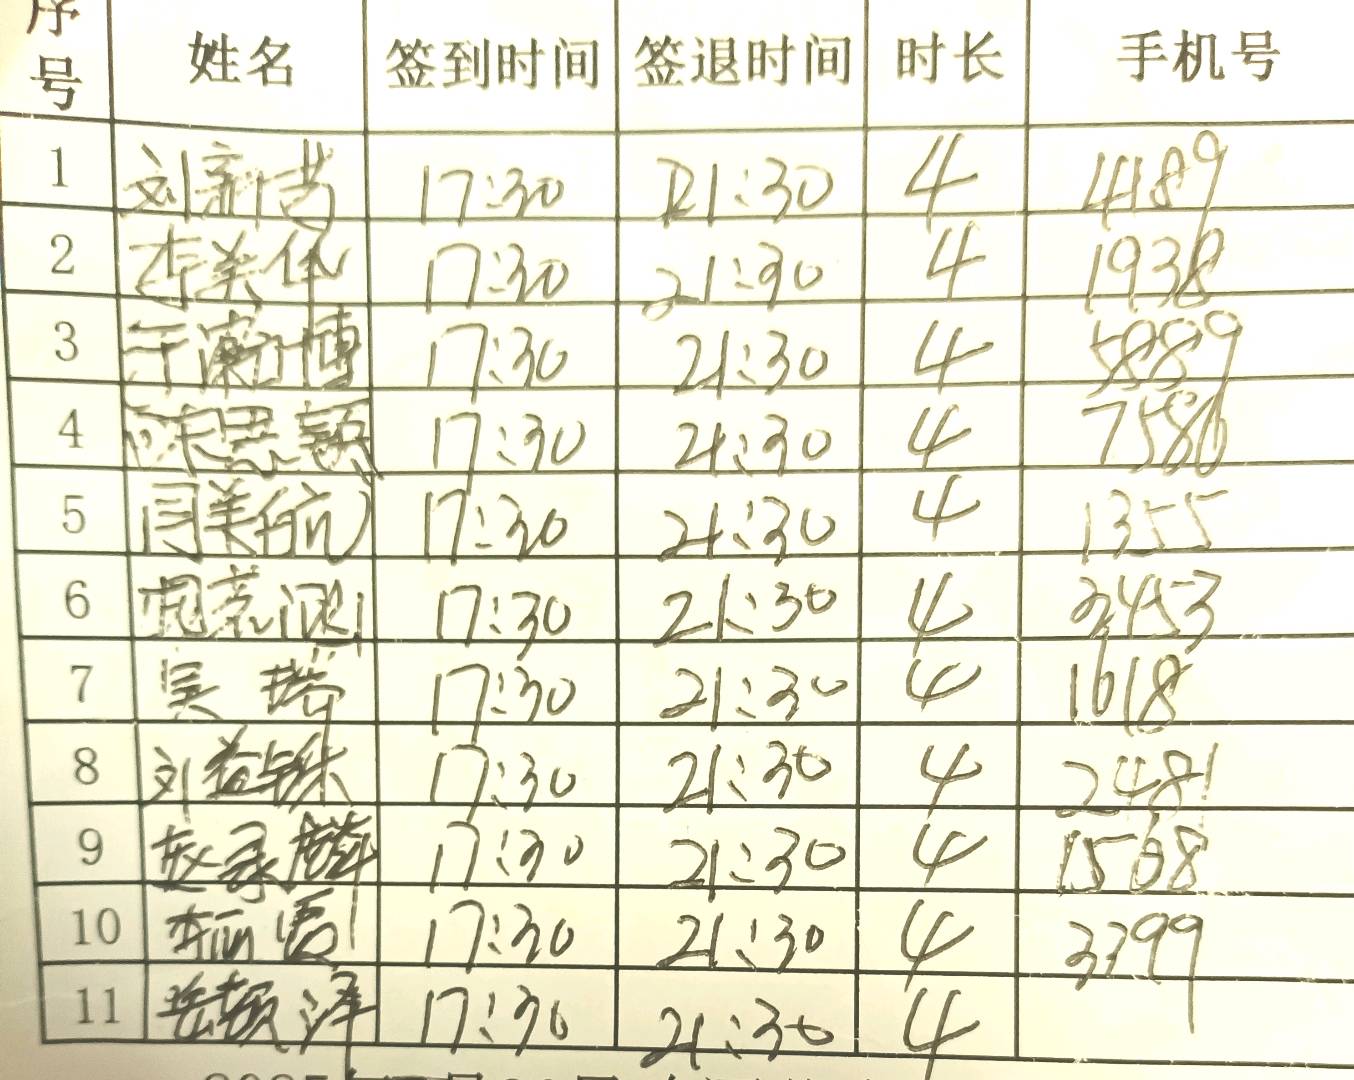 序号 姓名 签到时间 签退时间 时长 手机号
1 刘新 17:30 21:30 4 4189
2 李美华 17:30 21:30 4 1938
3 于 博 17:30 21:30 4 5889
4 陈思颖 17:30 21:30 4 7586
5 闫美航 17:30 21:30 4 1355
6 17:30 21:30 4 2453
7 吴瑞 17:30 21:30 4 1618
8 刘益铢 17:30 21:30 4 2481
9 赵承麟 17:30 21:30 4 1568
10 李 17:30 21:30 4 3399
11 岳颖泽 17:30 21:30 4